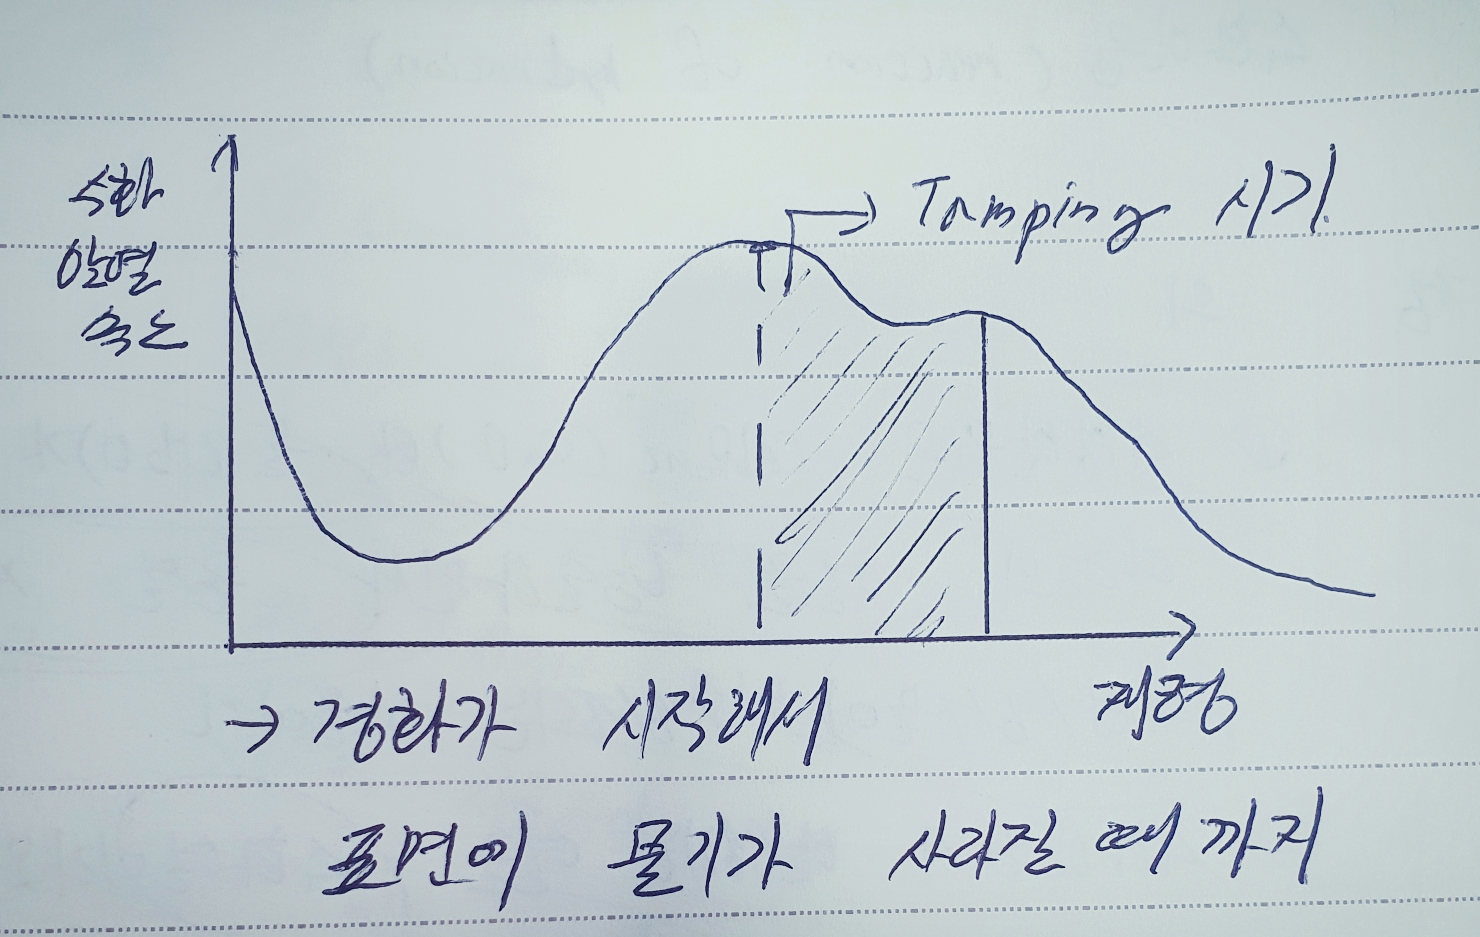 수화
발열
속도
Tamping 시기
재령
→ 경화가 시작해서
표면이 물기가 사라질 때 까지